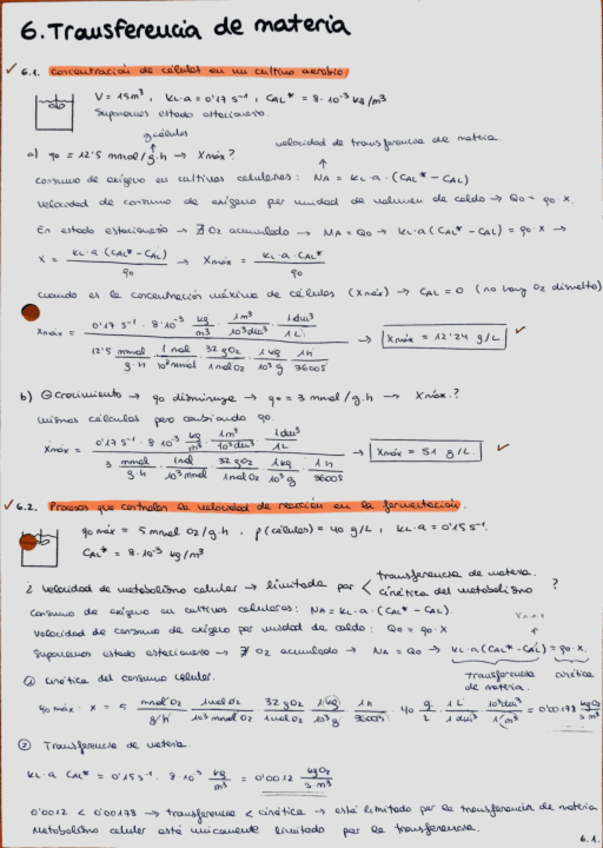 6. Transferencia de materia
✓ 6.1. Concentración de células en un cultivo aerobio
V = 15 m³, kL·a = 0'17 s⁻¹, CAL* = 8·10⁻³ kg/m³
Suponemos estado estacionario.
g células
velocidad de transferencia de materia.
a) q₀ = 12'5 mmol/g·h → Xmáx?
Consumo de oxígeno en cultivos celulares: NA = kL·a·(CAL* - CAL)
Velocidad de consumo de oxígeno por unidad de volumen de caldo → Q₀ = q₀·X.
En estado estacionario → ∄ O₂ acumulado → NA = Q₀ → kL·a(CAL* - CAL) = q₀·X →
X = kL·a·(CAL* - CAL) / q₀ → Xmáx = kL·a·CAL* / q₀
cuando es la concentración máxima de células (Xmáx) → CAL = 0 (no hay O₂ disuelto)
Xmáx = 0'17 s⁻¹ · 8·10⁻³ kg/m³ · 1m³/10³dm³ · 1dm³/1L / 12'5 mmol/g·h · 1mol/10³mmol · 32 gO₂/1molO₂ · 1kg/10³g · 1h/3600s → Xmáx = 12'24 g/L ✓
b) ⊖ crecimiento → q₀ disminuye → q₀ = 3 mmol/g·h → Xmáx?
mismos cálculos pero cambiando q₀.
Xmáx = 0'17 s⁻¹ · 8·10⁻³ kg/m³ · 1m³/10³dm³ · 1dm³/1L / 3 mmol/g·h · 1mol/10³mmol · 32gO₂/1molO₂ · 1kg/10³g · 1h/3600s → Xmáx = 51 g/L. ✓
✓ 6.2. Procesos que controlan la velocidad de reacción en la fermentación.
q₀ máx = 5 mmol O₂/g·h, ρ(células) = 40 g/L, kL·a = 0'15 s⁻¹.
CAL* = 8·10⁻³ kg/m³
¿ velocidad de metabolismo celular → limitada por < transferencia de materia. / cinética del metabolismo ?
Consumo de oxígeno en cultivos celulares: NA = kL·a·(CAL* - CAL)
Velocidad de consumo de oxígeno por unidad de caldo: Q₀ = q₀·X
Suponemos estado estacionario → ∄ O₂ acumulado → NA = Q₀ → kL·a(CAL* - CAL) = q₀·X.
transferencia de materia. cinética
① cinética del consumo celular.
q₀ máx · X = 5 mmol O₂/g·h · 1mol O₂/10³ mmol O₂ · 32 gO₂/1mol O₂ · 1kg/10³g · 1h/3600s · 40 g/L · 1L/1dm³ · 10³dm³/1m³ = 0'00178 kg O₂/s·m³
② Transferencia de materia.
kL·a CAL* = 0'15 s⁻¹ · 8·10⁻³ kg/m³ = 0'0012 kgO₂/s·m³
0'0012 < 0'00178 → transferencia < cinética → está limitado por la transferencia de materia
Metabolismo celular está únicamente limitado por la transferencia.
6.1.